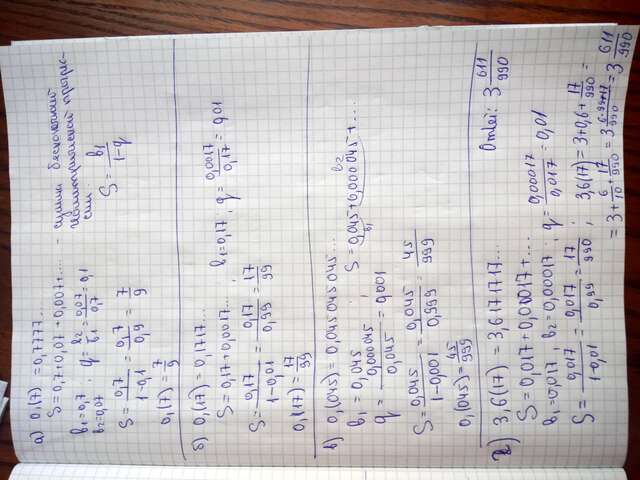 а) 0,(7) = 0,7777...
S = 0,7 + 0,07 + 0,007 + .... - сумма бесконечной
геометрической прогрес-
сии.
b₁ = 0,7 ; q = b₂/b₁ = 0,07/0,7 = 0,1
b₂ = 0,07
S = b₁/(1-q)
S = 0,7/(1-0,1) = 0,7/0,9 = 7/9
0,(7) = 7/9
б) 0,(17) = 0,1717...
S = 0,17 + 0,0017... b₁ = 0,17 ; q = 0,0017/0,17 = 0,01
S = 0,17/(1-0,01) = 0,17/0,99 = 17/99
0,(17) = 17/99
в) 0,(045) = 0,045045045...
b₁ = 0,045
S = 0,045 + 0,000045 + ...
b₁ b₂
q = 0,000045/0,045 = 0,001
S = 0,045/(1-0,001) = 0,045/0,999 = 45/999
0,(045) = 45/999
г) 3,6(17) = 3,6171717...
Ответ: 3 611/990
S = 0,017 + 0,00017 + ...
b₁ = 0,017 b₂ = 0,00017 ; q = 0,00017/0,017 = 0,01
S = 0,017/(1-0,01) = 0,017/0,99 = 17/990 ; 3,6(17) = 3 + 0,6 + 17/990 =
= 3 + 6/10 + 17/990 = 3 (6·99+17)/990 = 3 611/990